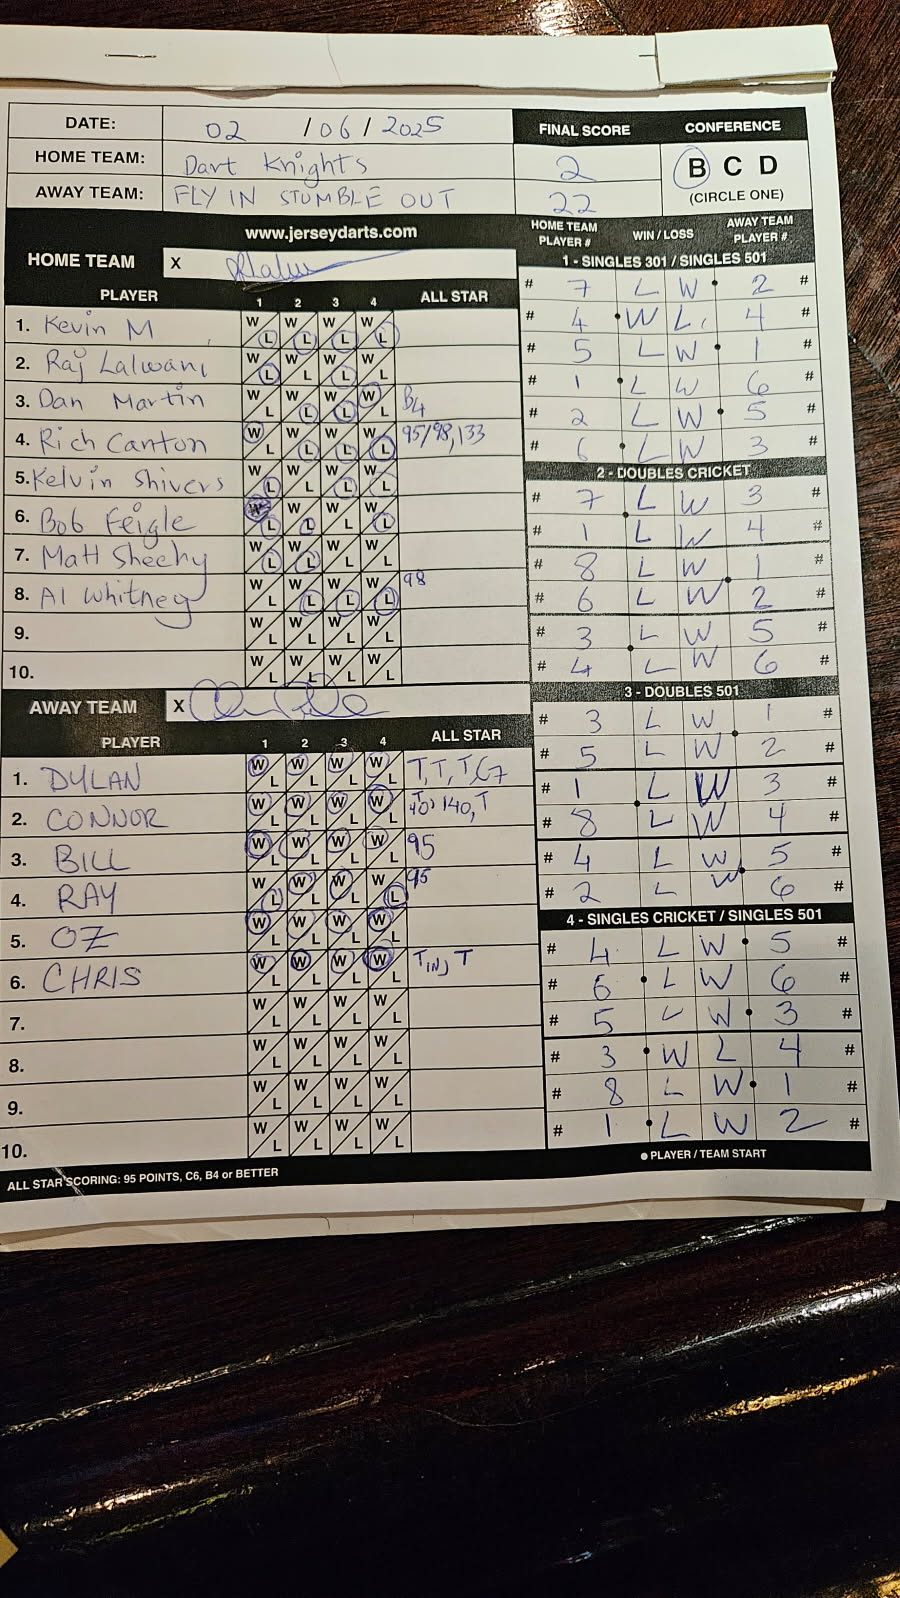 DATE: 02 / 06 / 2025
HOME TEAM: Dart Knights
AWAY TEAM: FLY IN STUMBLE OUT
FINAL SCORE
2
22
CONFERENCE
B C D
(CIRCLE ONE)
www.jerseydarts.com
HOME TEAM X
PLAYER 1 2 3 4 ALL STAR
1. Kevin M W L W L W L W L
2. Raj Lalwani W L W L W L W L
3. Dan Martin W L W L W L W L B4
4. Rich Canton W L W L W L W L 95/98,133
5. Kelvin Shivers W L W L W L W L
6. Bob Feigle W L W L W L W L
7. Matt Sheehy W L W L W L W L
8. Al Whitney W L W L W L W L 98
9. W L W L W L W L
10. W L W L W L W L
AWAY TEAM X
PLAYER 1 2 3 4 ALL STAR
1. DYLAN W L W L W L W L T, T, T, C7
2. CONNOR W L W L W L W L 140, T
3. BILL W L W L W L W L 95
4. RAY W L W L W L W L 95
5. OZ W L W L W L W L
6. CHRIS W L W L W L W L TIN, T
7. W L W L W L W L
8. W L W L W L W L
9. W L W L W L W L
10. W L W L W L W L
ALL STAR SCORING: 95 POINTS, C6, B4 or BETTER
HOME TEAM PLAYER # WIN / LOSS AWAY TEAM PLAYER #
1 - SINGLES 301 / SINGLES 501
# 7 L W 2 #
# 4 W L 4 #
# 5 L W 1 #
# 1 L W 6 #
# 2 L W 5 #
# 6 L W 3 #
2 - DOUBLES CRICKET
# 7 L W 3 #
# 1 L W 4 #
# 8 L W 1 #
# 6 L W 2 #
# 3 L W 5 #
# 4 L W 6 #
3 - DOUBLES 501
# 3 L W 1 #
# 5 L W 2 #
# 1 L W 3 #
# 8 L W 4 #
# 4 L W 5 #
# 2 L W 6 #
4 - SINGLES CRICKET / SINGLES 501
# 4 L W 5 #
# 6 L W 6 #
# 5 L W 3 #
# 3 W L 4 #
# 8 L W 1 #
# 1 L W 2 #
● PLAYER / TEAM START